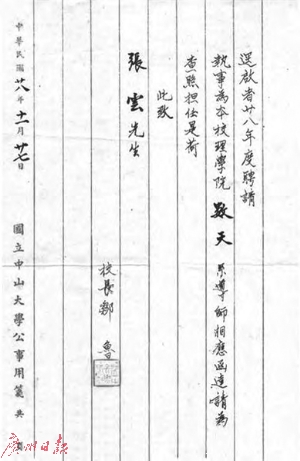 逕啟者廿八年度聘請
執事為本校理學院數天系導師相應函達請為
查照担任是荷
此致
張雲先生
校長鄒魯
中華民國廿八年十一月廿七日
國立中山大學公事用箋
廣州日报